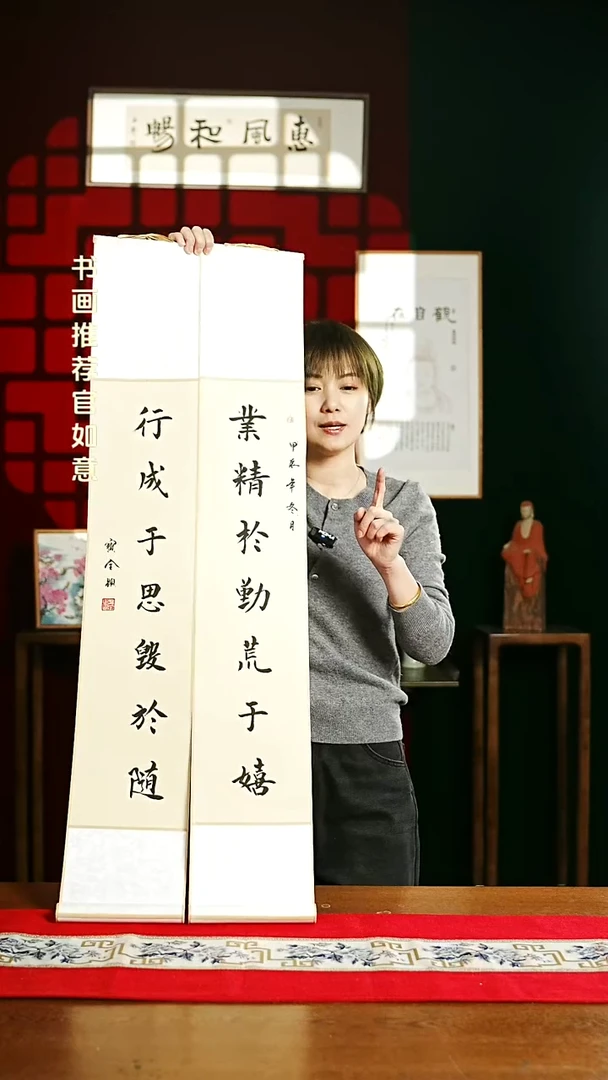 惠風和暢
书画推荐官如意
觀自在
甲辰年冬月
業精於勤荒于嬉
行成于思毀於随